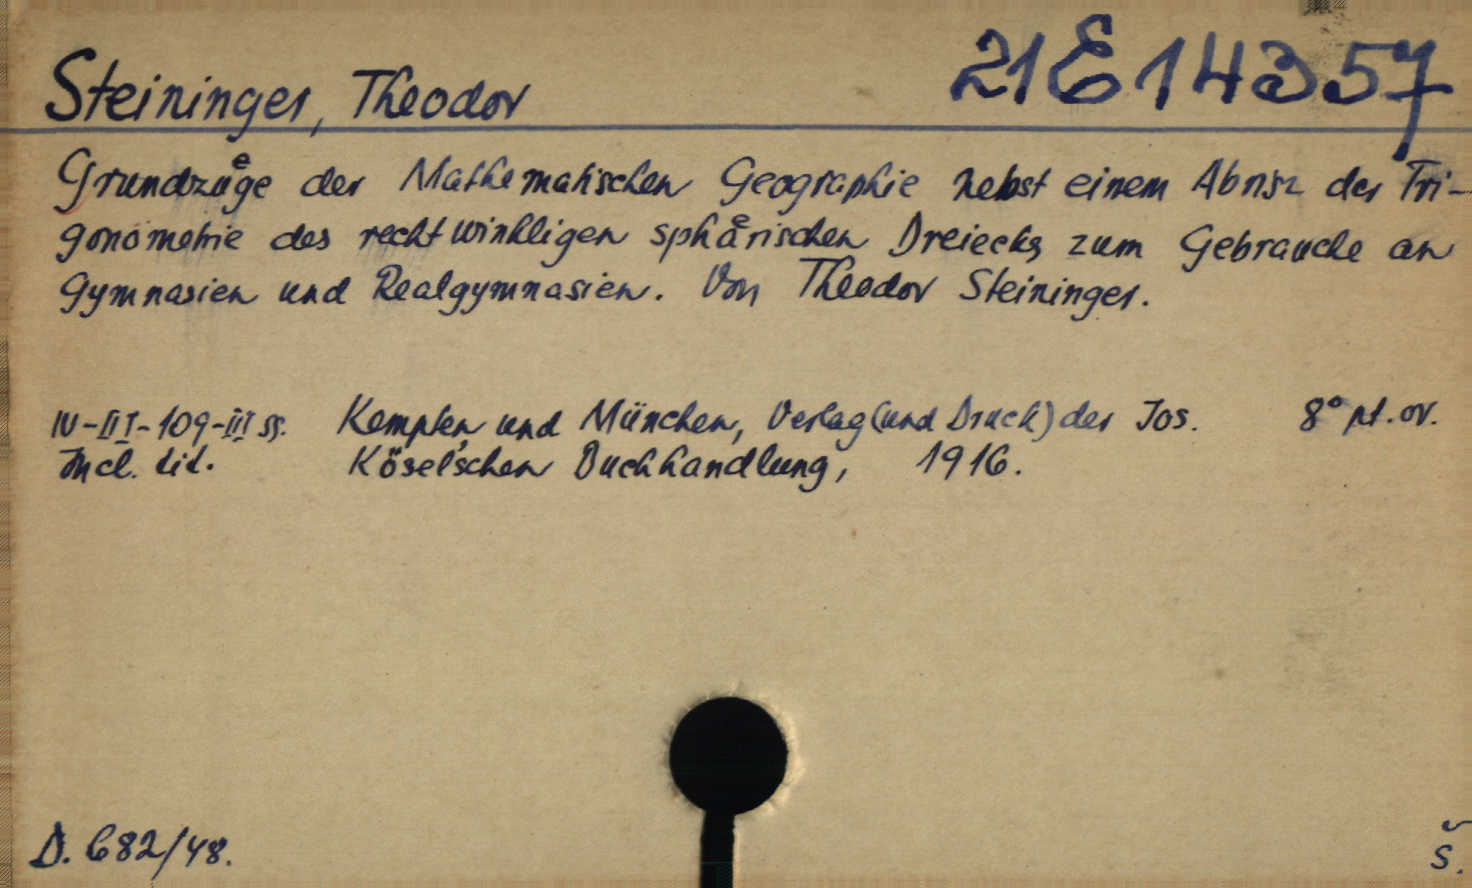 21E14357
Steininger, Theodor
Grundzuͤge der Mathematischen Geographie nebst einem Abrisz der Tri-
gonometrie des rechtwinkligen sphaͤrischen Dreiecks zum Gebrauche an
Gymnasien und Realgymnasien. Von Theodor Steininger.
IV-III-109-III ss. Kempten und München, Verlag (und Druck) der Jos. 8° pt. or.
Incl. tit. Kösel'schen Buchhandlung, 1916.
D. 682/48. š.